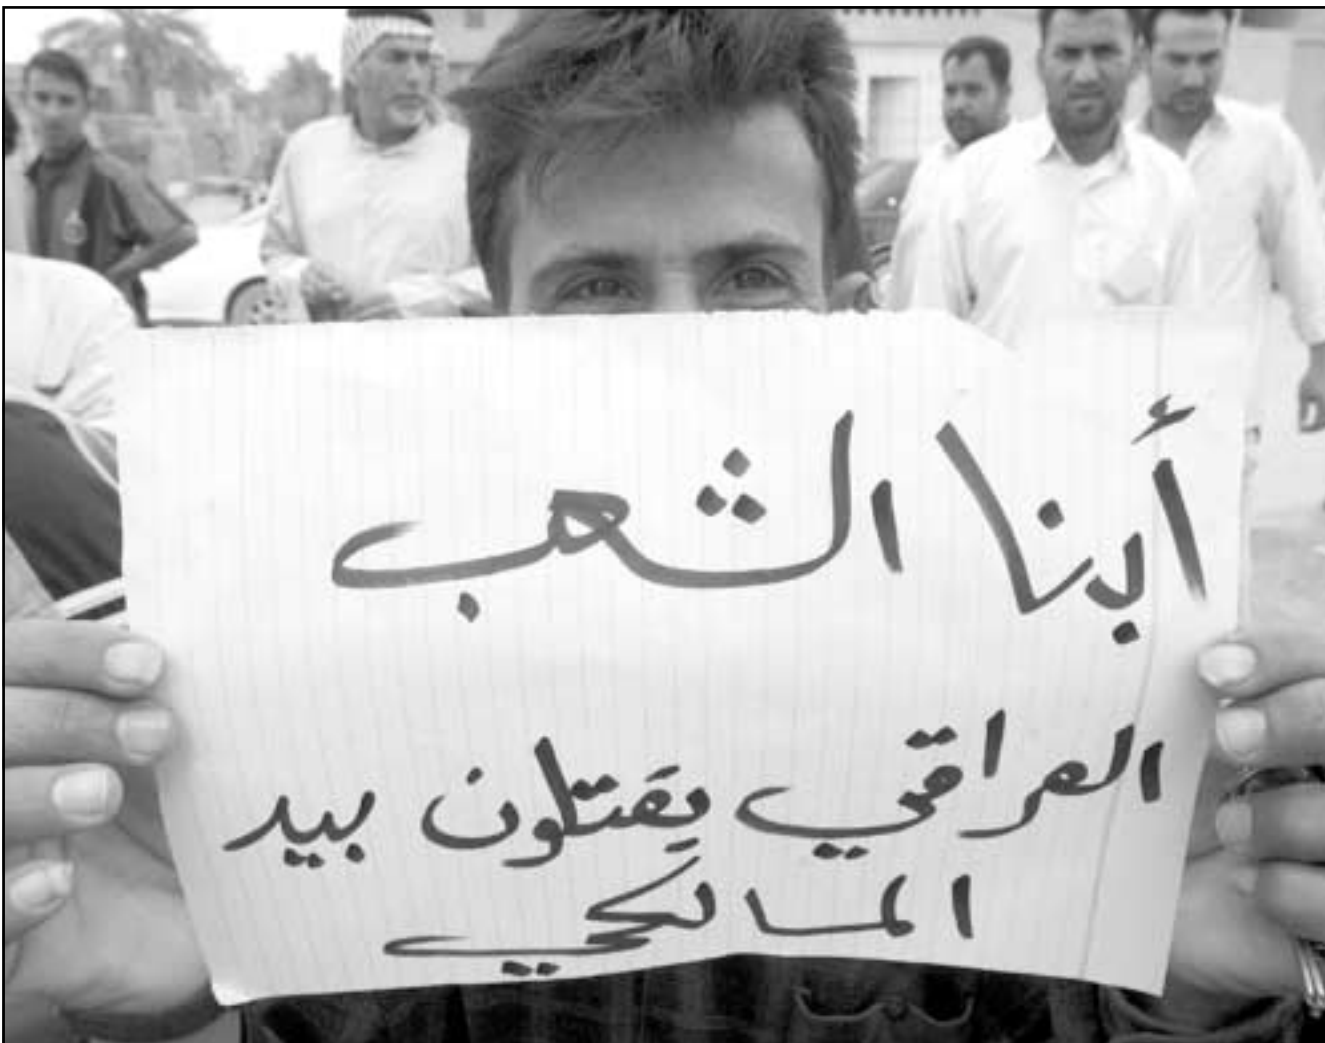 أبنا الشعب
العراقي يقتلون بيد
المالكي